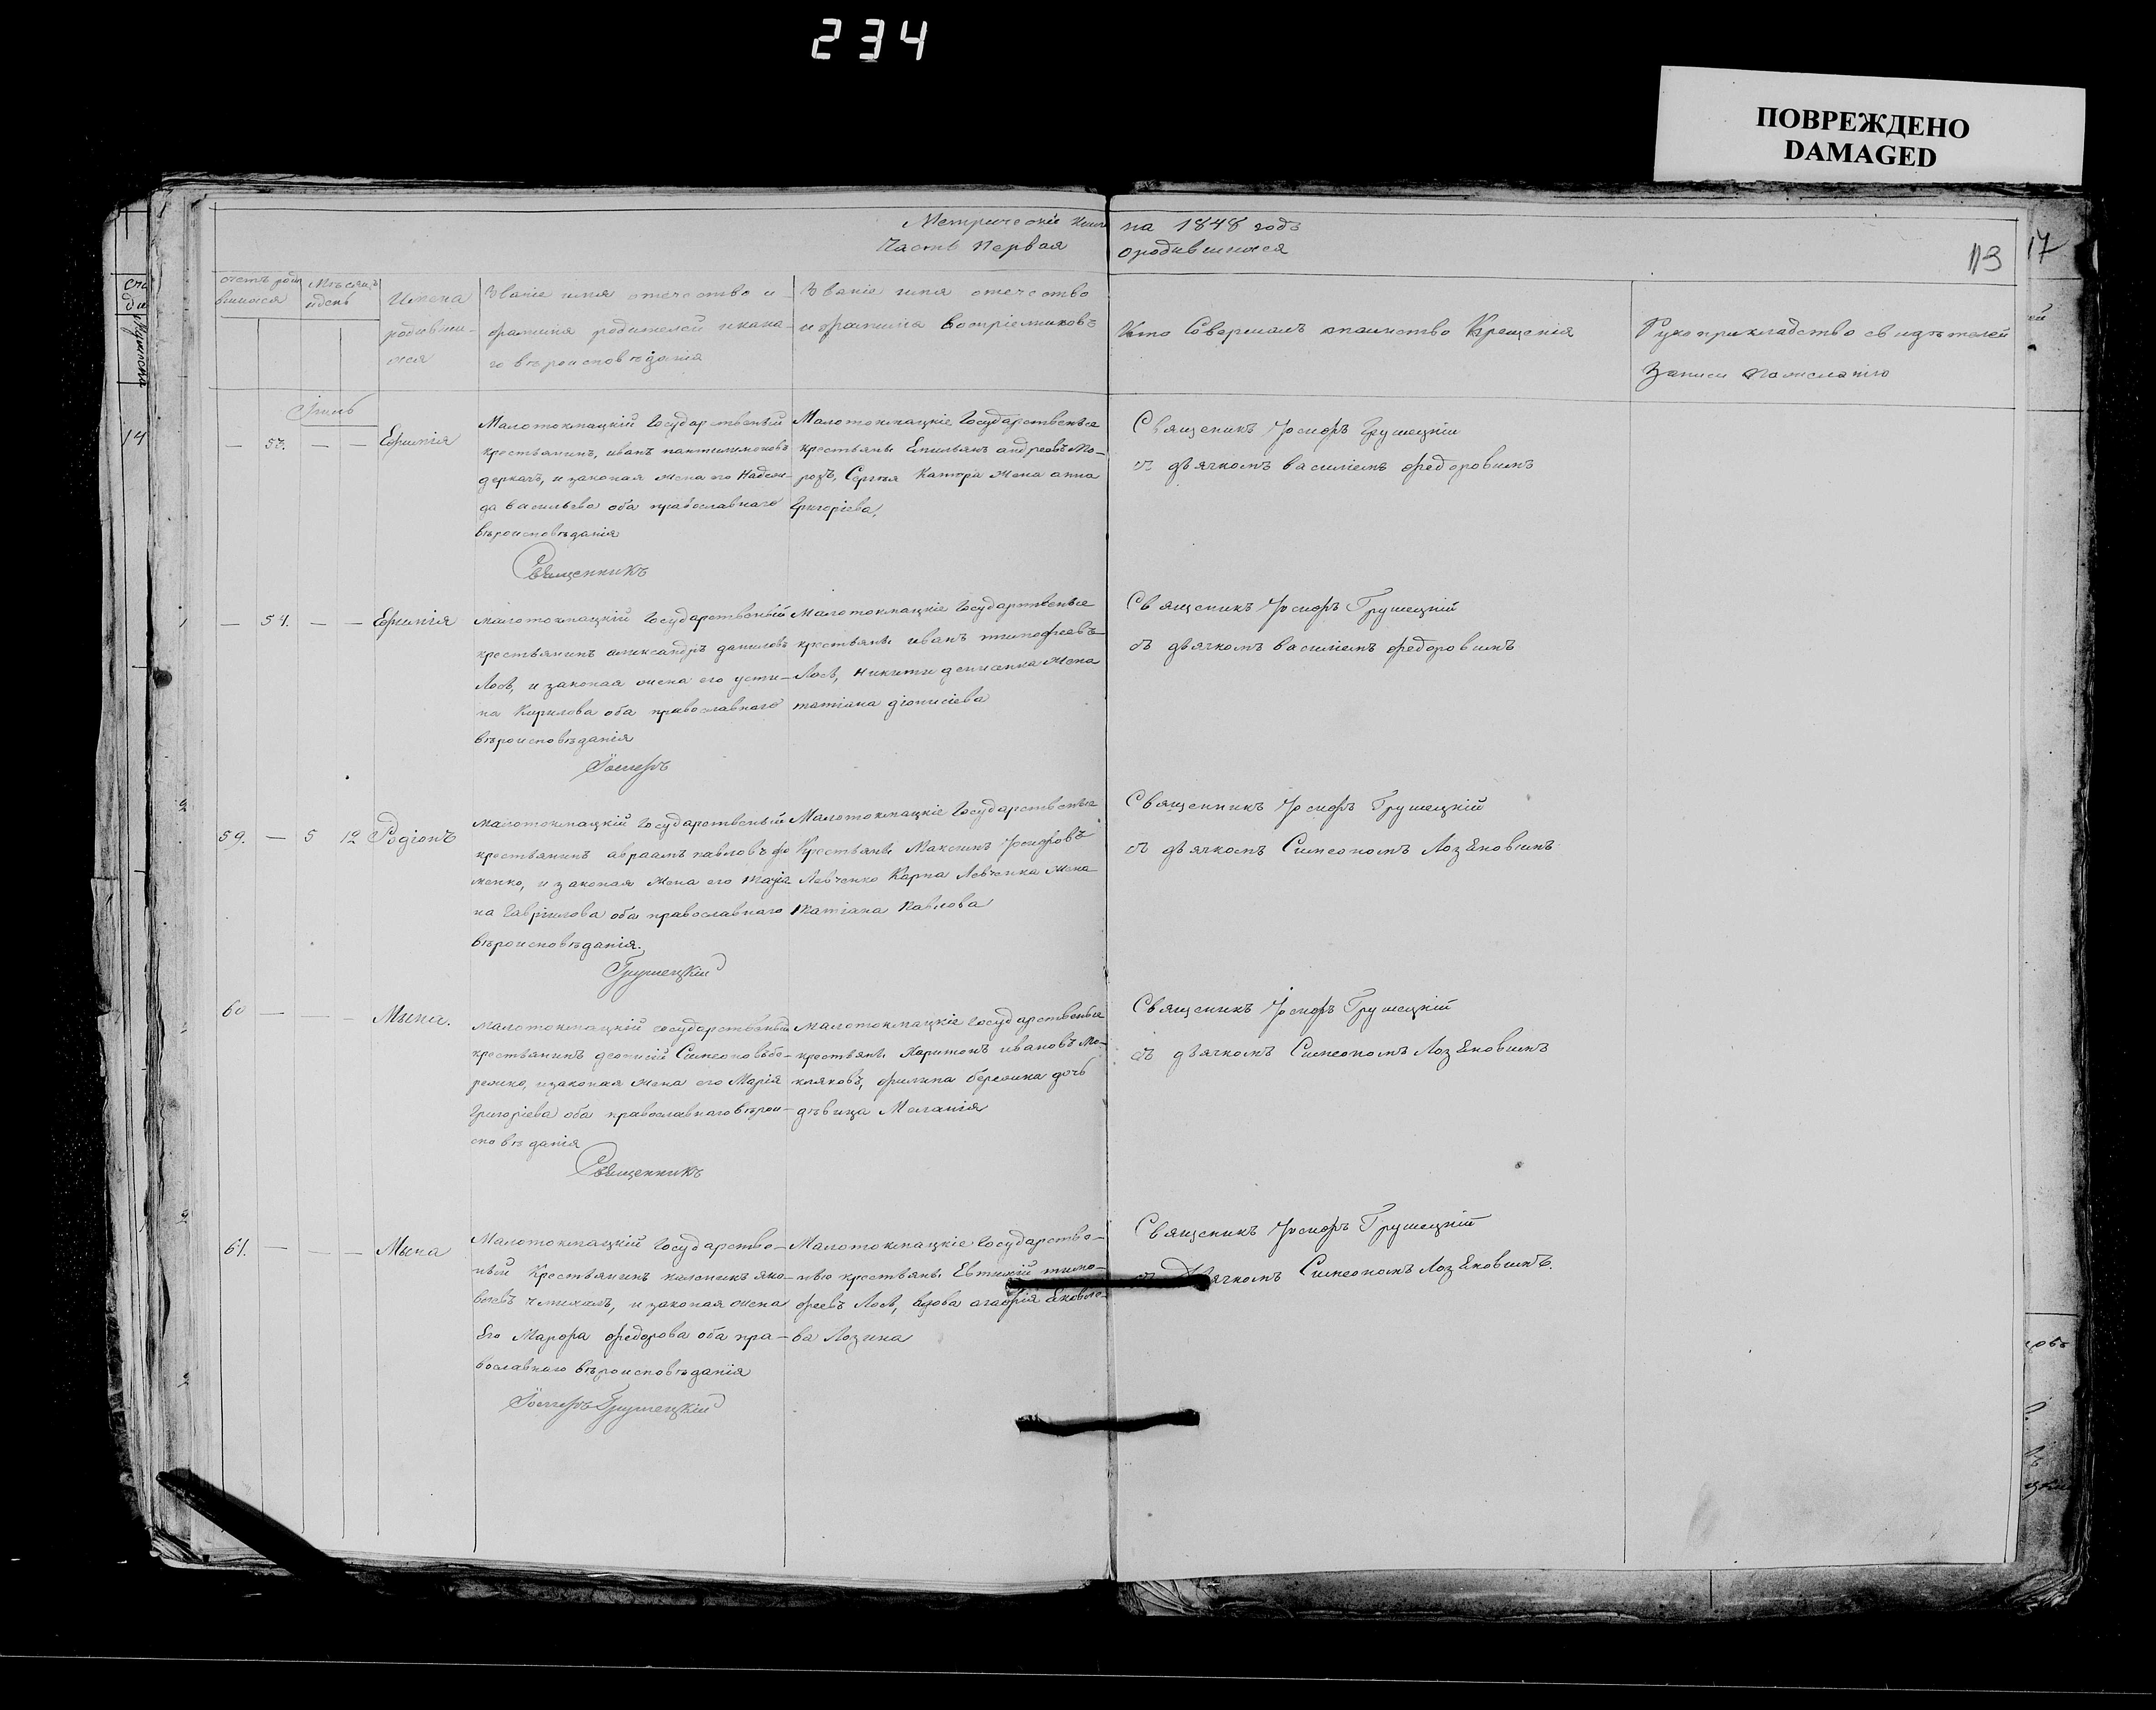 234
ПОВРЕЖДЕНО
DAMAGED
Метрической книги на 1848 годъ
Часть Первая о родившихся
113
17
счетъ роди
вшихся
Мѣсяцъ
и день
Имена
родивши
хся
Званіе имя отечество и
фамилія родителей и кака-
го вѣроисповѣданія
Званіе имя отечество
и фамилія воспріемниковъ
Кто Совершалъ таинство Крещенія
Рукоприкладство свидѣтелей
Записи по желанію
14
— 53. — —
Ефимія
Малотокмацкій Государственый
крестьянинъ, иванъ пантилимоновъ
деркачъ, и законая жена его Надеж-
да васильева оба православнаго
вѣроисповѣданія
Священникъ
Малотокмацкіе Государственые
крестьяне Емильянъ андреевъ Мо-
розъ, Сергѣя жена анна
Григоріева,
Священикъ Іосифъ Грушецкій
съ дьячкомъ василіемъ федоровимъ
— 54. — —
Ефимія
Малотокмацкій Государственый
крестьянинъ александръ даниловъ
Лось, и законая жена его усти-
на Кирилова оба православнаго
вѣроисповѣданія
Іосифъ
Малотокмацкіе Государственые
крестьяне иванъ тимофеевъ
Лось, никити денисенка жена
татіана діонисіева
Священикъ Іосифъ Грушецкій
съ дьячкомъ василіемъ федоровимъ
59. — 5 12
Родіонъ
Малотокмацкій Государственый
крестьянинъ авраамъ павловъ фо
менко, и законая жена его
на Гавріилова оба православнаго
вѣроисповѣданія.
Грушецкій
Малотокмацкіе Государственые
Крестьяне Максимъ Іосифовъ
Левченко Карпа Левченка жена
татіана Павлова
Священникъ Іосифъ Грушецкій
съ дьячкомъ Симеономъ Лозяновимъ
60 — — —
Мына.
Малотокмацкій государственый
крестьянинъ деонисій Симеоновъ бе-
режно, и законая жена его Марія
Григоріева оба православнаго вѣрои-
сповѣданія
Священникъ
малотокмацкіе государственые
крестьяне Харитонъ ивановъ Мо-
кляковъ, филипа бережна дочь
дѣвица Меланія
Священикъ Іосифъ Грушецкій
съ дьячкомъ Симеономъ Лозяновимъ
61. — — —
Мына
Малотокмацкій Государстве-
ный Крестьянинъ каленикъ яко-
влевъ чмихалъ, и законая жена
Его Марфа федорова оба пра-
вославнаго вѣроисповѣданія
Іосифъ Грушецкій
Малотокмацкіе Государстве-
ные крестьяне Евтихій тимо-
феевъ Лось, вдова агафія Яковле-
ва Лозина
Священикъ Іосифъ Грушецкій
съ дьячкомъ Симеономъ Лозяновимъ.